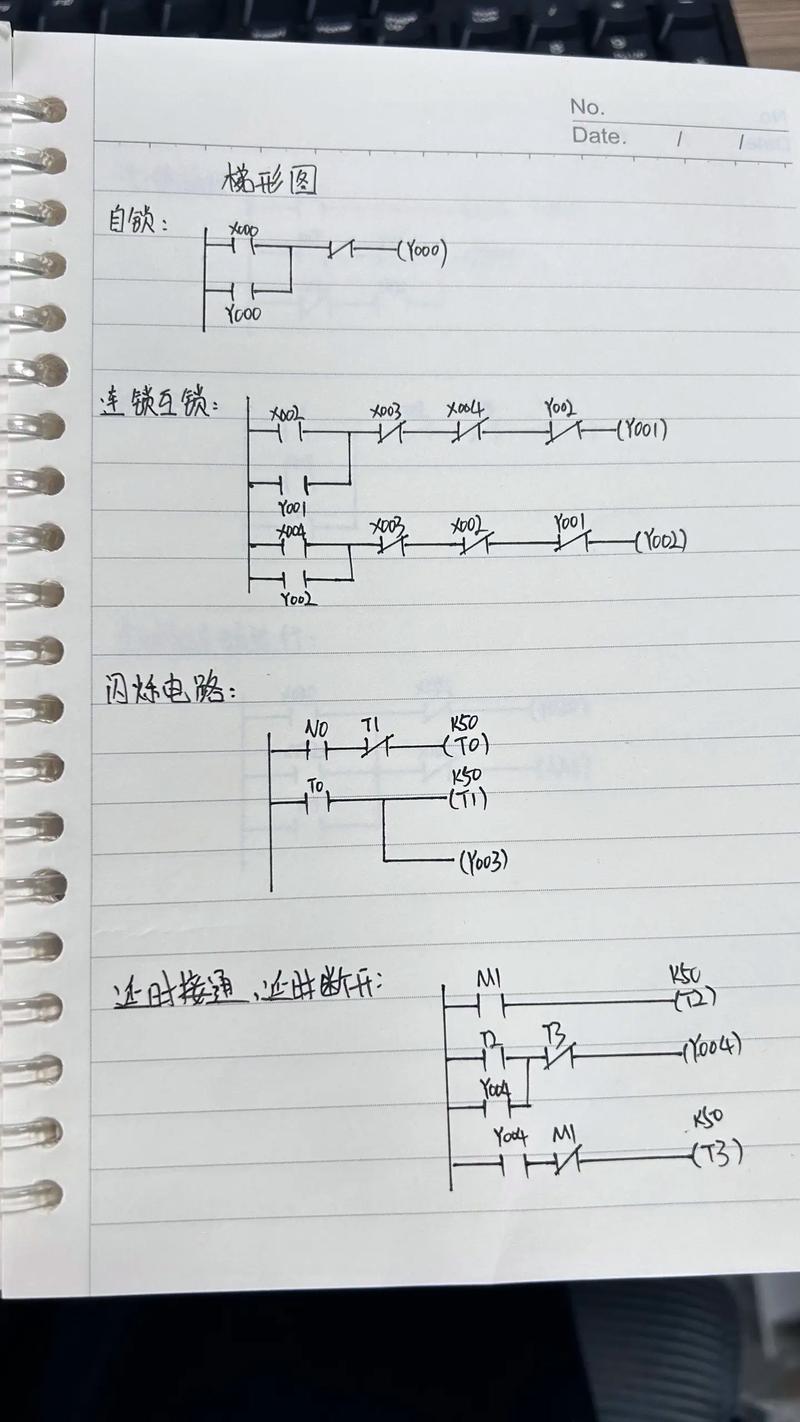 No.
Date. / /
梯形图
自锁:
X000
(Y000)
Y000
连锁互锁:
X002 X003 X004 Y002
(Y001)
Y001
X004 X003 X002 Y001
(Y002)
Y002
闪烁电路:
N0 T1 K50
(T0)
T0 K50
(T1)
(Y003)
延时接通、延时断开:
M1 K50
(T2)
T2 T3
(Y004)
Y004
Y004 M1 K50
(T3)